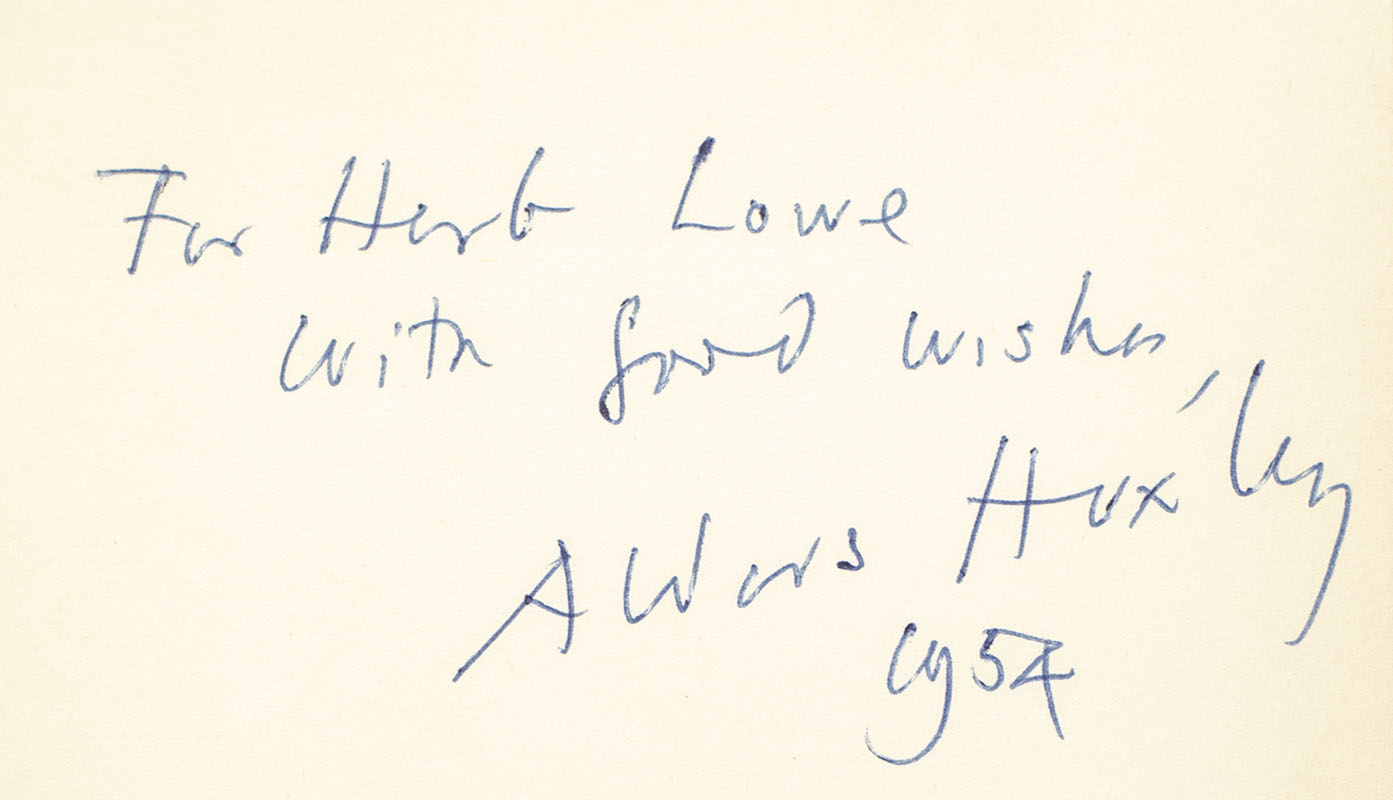 For Herb Lowe
with good wishes,
Aldous Huxley
1954